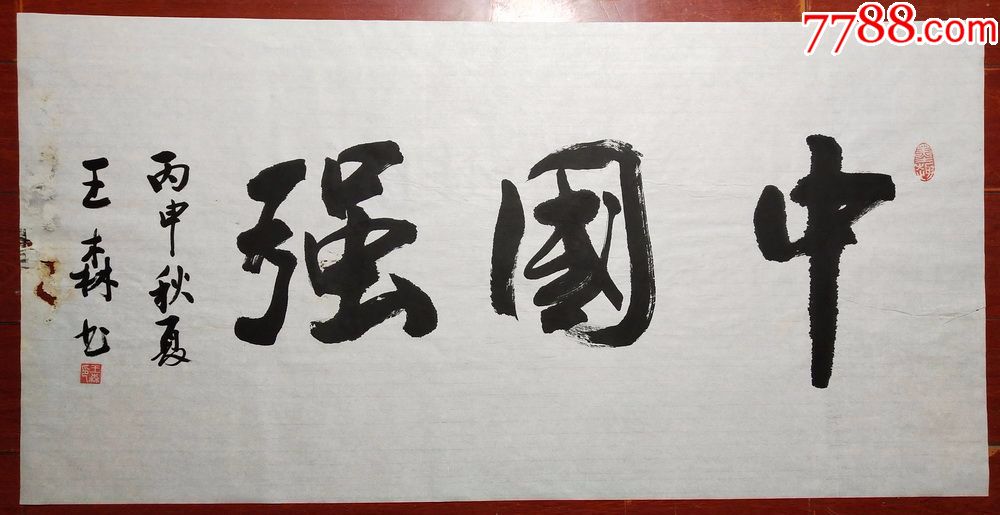 7788.com
中國强
丙申秋夏
王森书